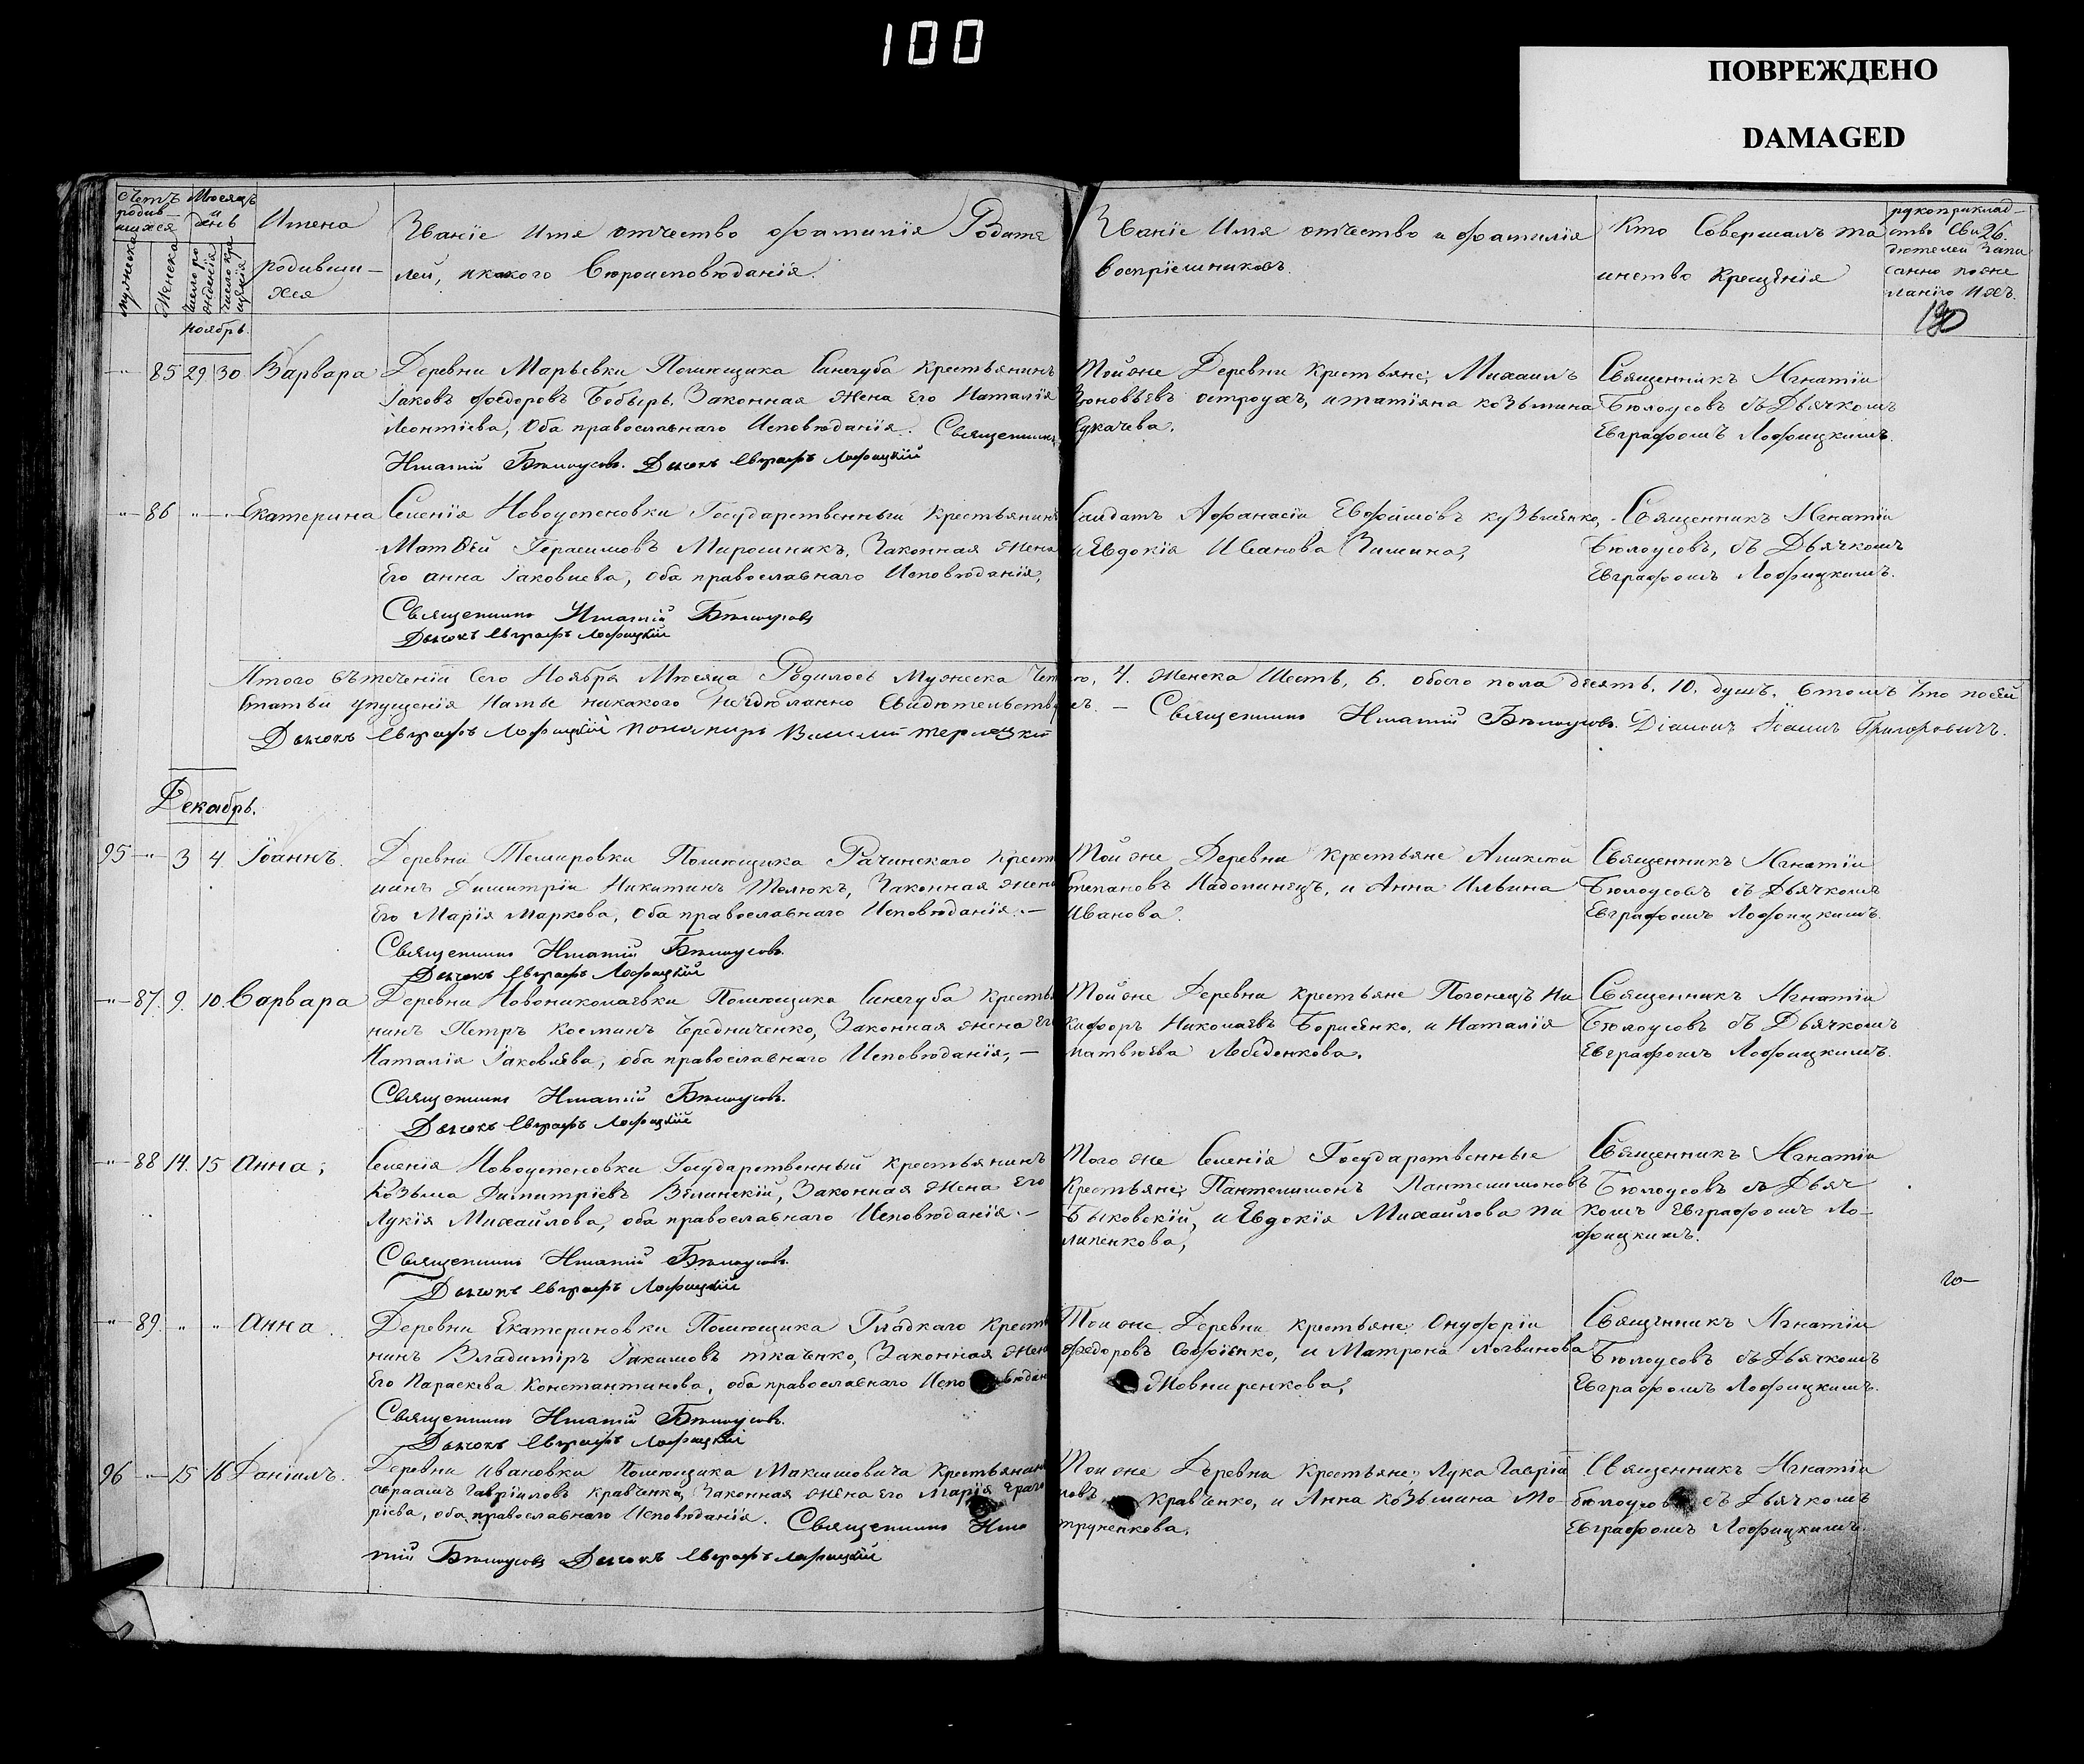 100
ПОВРЕЖДЕНО
DAMAGED
Счетъ родив-шихся
Мѣсяцъ и день
Имена родивши-хся
Званіе Имя отчество фамилія Родите
лей, и какого Вѣроисповѣданія.
Званіе Имя отчество и фамилія
Воспріемниковъ.
Кто Совершалъ та
инство Крещенія
рукоприклад-
ство Сви
дѣтелей Запи
санно поже
ланію Ихъ.
26
190
мужеска
Женска
Число рожденія
Число крещенія
Ноябрь.
85 29 30 Варвара
Деревни Марьевки Помѣщика Синегуба Крестьянинъ
Іаковъ Феодоровъ Бобырь, Законная Жена Его Наталія
Леонтіева, Оба православнаго Исповѣданія. Священникъ
Игнатій Бѣлоусовъ. Дьячокъ Евграфъ Лофицкій
Той же Деревни Крестьяне, Михаилъ
остроухъ, и татіяна козьмина
Священникъ Игнатіи
Бѣлоусовъ съ Дьячкомъ
Евграфомъ Лофицкимъ.
86 Екатерина
Селенія Новоуспеновки Государственный Крестьянинъ
Матѳей Герасимовъ Мирошникъ, Законная Жена
Его анна Іаковлева, оба православнаго Исповѣданія,
Священникъ Игнатій Бѣлоусовъ
Дьячокъ Евграфъ Лофицкій
Салдатъ Афанасіи Евфимовъ кузьменко,
и Евдокія Иванова Зимина,
Священникъ Игнатіи
Бѣлоусовъ, съ Дьячкомъ
Евграфомъ Лофицкимъ.
Итого въ теченіи Сего Ноября Мѣсяца Родилось Мужеска Чет ро, 4. Женска Шесть, 6. обоего пола десять, 10. душъ. Втомъ Что посей
Статьи упущенія Натье никакого Несдѣланно Свидѣтельству емъ. — Священникъ Игнатій Бѣлоусовъ. Діаконъ Іоаннъ Григоровичъ.
Дьячокъ Евграфъ Лофицкій Пономарь Василій
Декабрь.
95 3 4. Іоаннъ.
Деревни Темировки Помѣщика Рачинскаго Крест
нинъ Димитріи Никитинъ Телюкъ, Законная жена
Его Марія Маркова, Оба православнаго Исповѣданія. —
Священникъ Игнатій Бѣлоусовъ.
Дьячокъ Евграфъ Лофицкій
Той же Деревни Крестьяне Алексѣй
Степановъ и Анна Ильина
Иванова.
Священникъ Игнатіи
Бѣлоусовъ съ Дьячкомъ
Евграфомъ Лофицкимъ.
87. 9. 10. Варвара
Деревни Новониколаевки Помѣщика Синегуба Крестья
нинъ Петръ Косминъ Чередниченко, Законная жена Его
Наталія Іаковлева, оба православнаго Исповѣданія, —
Священникъ Игнатій Бѣлоусовъ.
Дьячокъ Евграфъ Лофицкій
Той же Деревни Крестьяне Погонецъ Ни
кифоръ Николаевъ Борисенко, и Наталія
Матвѣева Лебеденкова.
Священникъ Игнатіи
Бѣлоусовъ съ Дьячкомъ
Евграфомъ Лофицкимъ.
88 14. 15 Анна;
Селенія Новоуспеновки Государственный крестьянинъ
Козьма Димитріевъ Законная Жена Его
Лукія Михайлова, оба православнаго Исповѣданія. —
Священникъ Игнатій Бѣлоусовъ.
Дьячокъ Евграфъ Лофицкій
Того же Селенія Государственные
Крестьяне, Пантелимонъ Пантелимоновъ
Быковскій, и Евдокія Михайлова Пи
липенкова,
Священникъ Игнатіи
Бѣлоусовъ съ Дьяч
комъ Евграфомъ Ло-
фицкимъ.
го-
89. Анна
Деревни Екатериновки Помѣщика Гладкаго Крестья
нинъ Владиміръ Іакимовъ ткаченко, Законная Жена
Его Параскева Константинова, оба православнаго Испо вѣдан
Священникъ Игнатій Бѣлоусовъ.
Дьячокъ Евграфъ Лофицкій
Той же Деревни крестьяне, Онуфріи
Федоровъ Софіенко, и Матрона Логвинова
Жовниренкова,
Священникъ Игнатіи
Бѣлоусовъ съ Дьячкомъ
Евграфомъ Лофицкимъ.
96 15 16 Даніилъ.
Деревни Ивановки Помѣщика Максимовича Крестьянинъ
Авраамъ Гавріиловъ Кравченко, Законная Жена Его Марія
ріева, оба православнаго Исповѣданія. Священникъ Игна
тій Бѣлоусовъ Дьячокъ Евграфъ Лофицкій
Той же Деревни Крестьяне, Лука Гавріи
ловъ Кравченко, и Анна Козьмина Мо-
труненкова.
Священникъ Игнатіи
бѣлоусовъ съ Дьячкомъ
Евграфомъ Лофицкимъ.